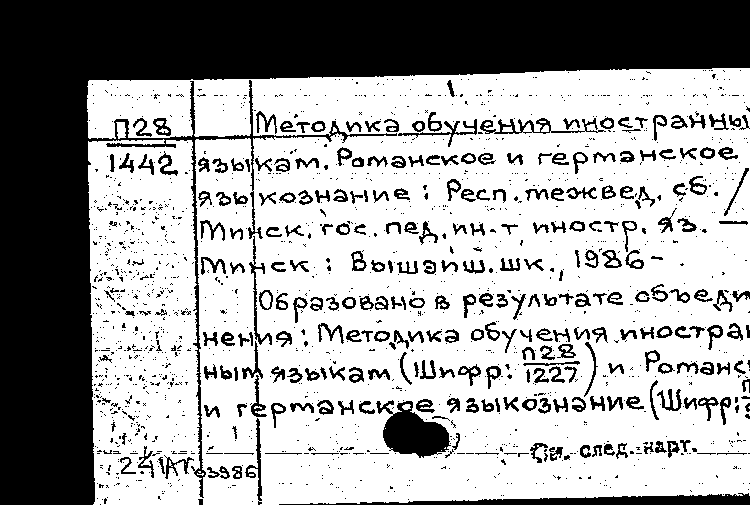 1.
П28
1442
Методика обучения иностранны
языкам. Романское и германское
языкознание : Респ. межвед. сб. /
Минск. гос. пед. ин-т иностр. яз. —
Минск : Вышэйш. шк., 1986 - .
Образовано в результате объеди
нения: Методика обучения иностран
ным языкам (Шифр: П28/1227) и Романс
и германское языкознание (Шифр:
См. след. карт.